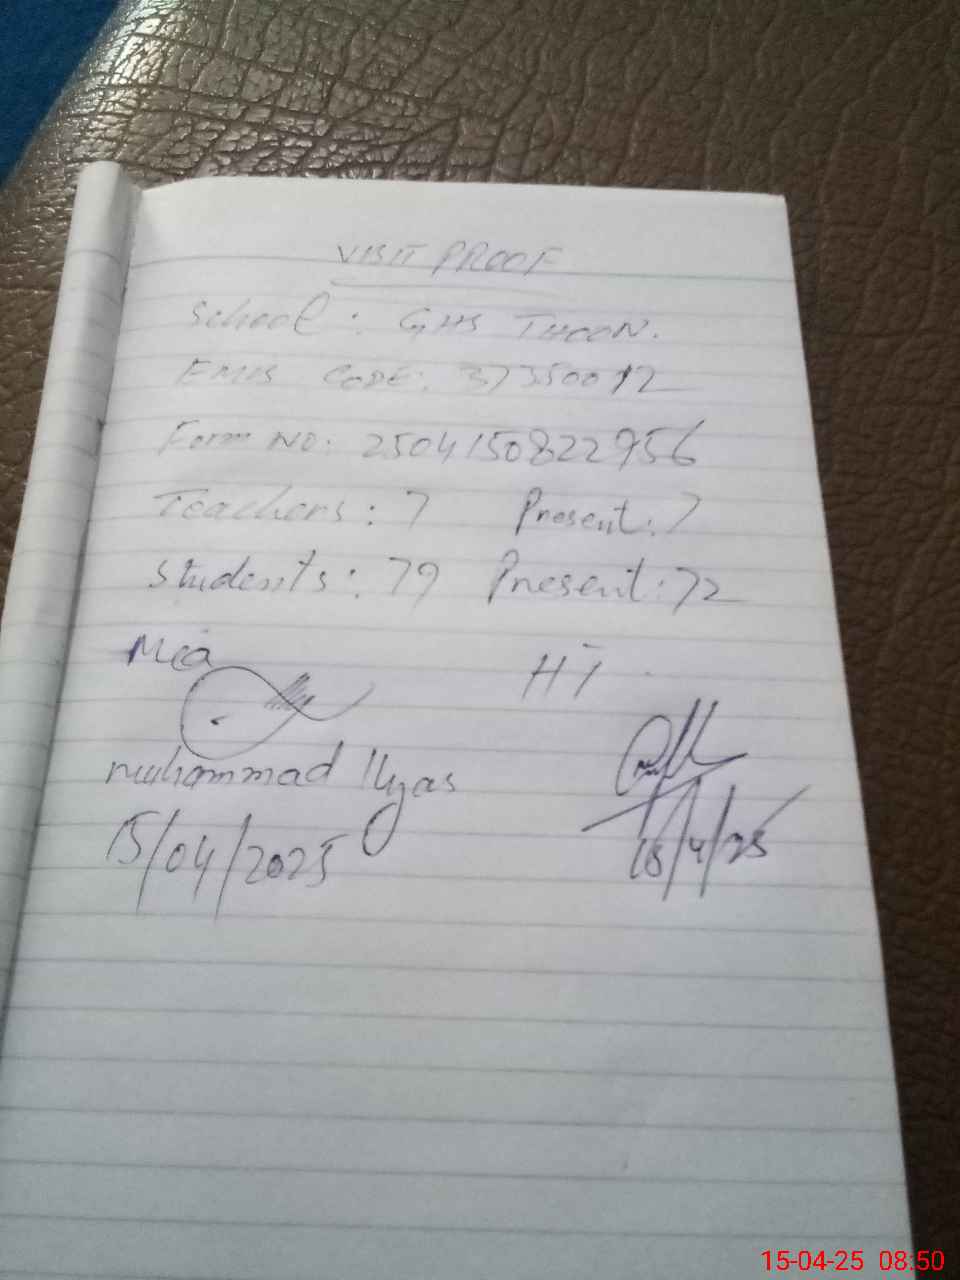 VISIT PROOF
School: GHS THOON.
EMIS CODE: 37350012
Form NO: 2504150822956
Teachers: 7 Present: 7
Students: 79 Present: 72
Mea HT
Muhammad Ilyas
15/04/2025 15/4/25
15-04-25 08:50